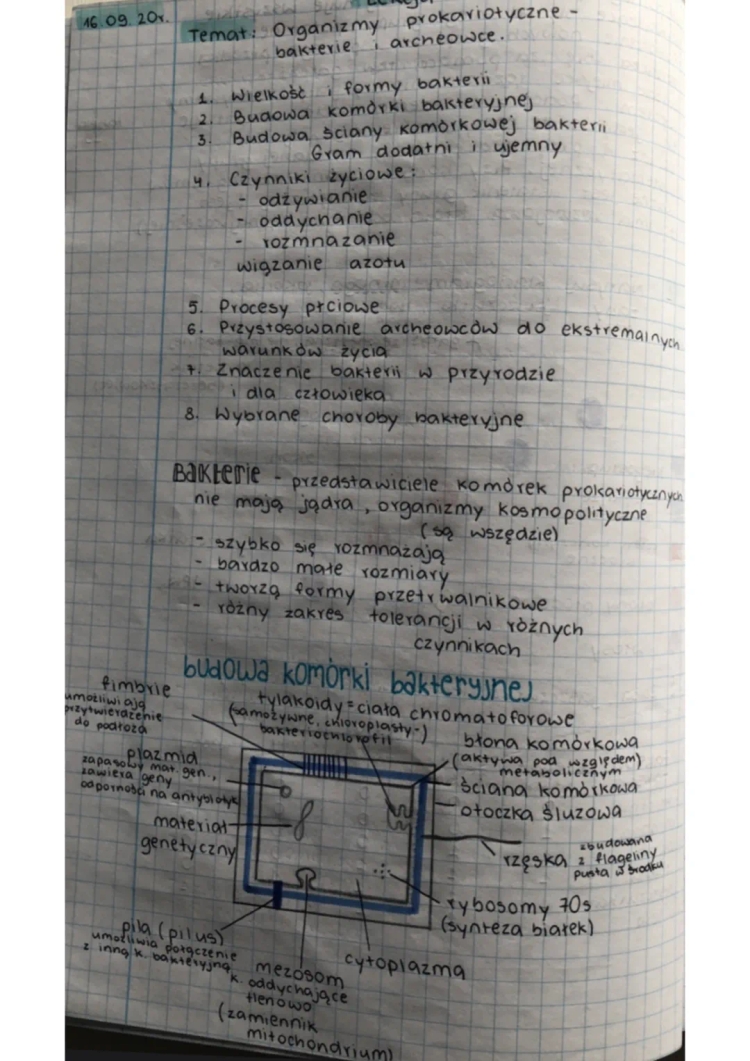 16.09.20r.
Temat: Organizmy prokariotyczne -
bakterie i archeowce.
1. Wielkość i formy bakterii
2. Budowa komórki bakteryjnej
3. Budowa ściany komórkowej bakterii
Gram dodatni i ujemny
4. Czynniki życiowe:
- odżywianie
- oddychanie
- rozmnażanie
wiązanie azotu
5. Procesy płciowe
6. Przystosowanie archeowców do ekstremalnych
warunków życia
7. Znaczenie bakterii w przyrodzie
i dla człowieka
8. Wybrane choroby bakteryjne
Bakterie - przedstawiciele komórek prokariotycznych
nie mają jądra, organizmy kosmopolityczne
(są wszędzie)
- szybko się rozmnażają
- bardzo małe rozmiary
- tworzą formy przetrwalnikowe
- różny zakres tolerancji w różnych
czynnikach
budowa komórki bakteryjnej
fimbrie
umożliwiają
przytwierdzenie
do podłoża
tylakoidy = ciała chromatoforowe
(samożywne, chloroplasty-)
bakteriochlorofil
plazmid
zapasowy mat. gen.,
zawiera geny
odporności na antybiotyk
materiał
genetyczny
błona komórkowa
(aktywa pod względem)
metabolicznym
ściana komórkowa
otoczka śluzowa
rzęska
zbudowana
z flageliny
pusta w środku
rybosomy 70s
(synteza białek)
pila (pilus)
umożliwia połączenie
z inną k. bakteryjną
mezosom
k. oddychające
tlenowo
(zamiennik
mitochondrium)
cytoplazma